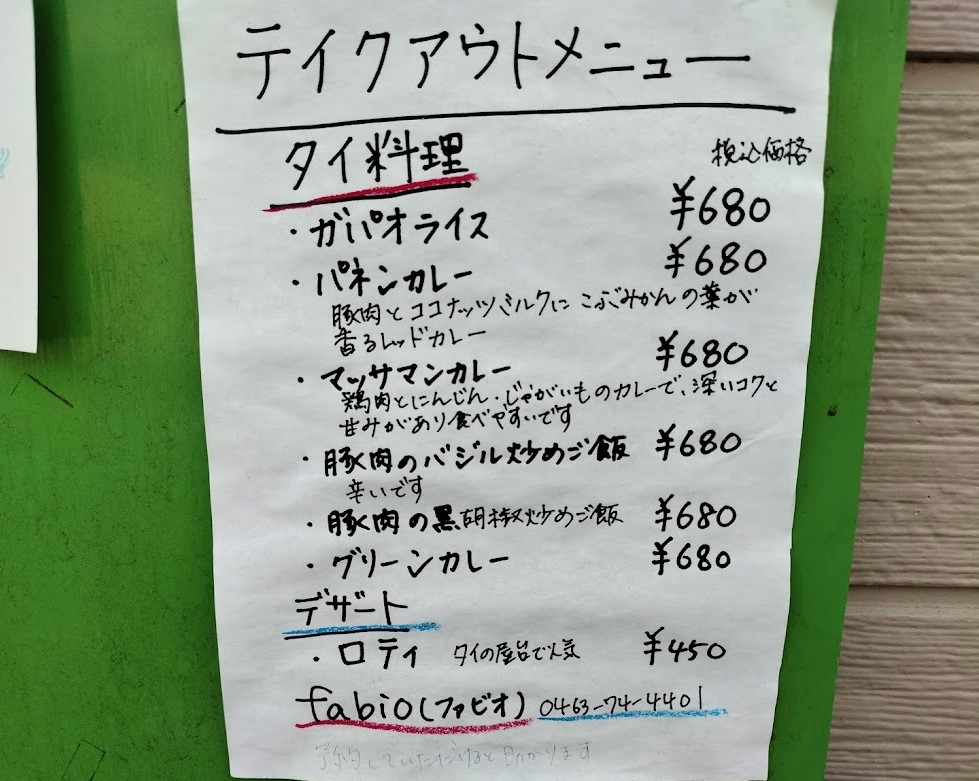 テイクアウトメニュー
タイ料理 税込価格
・ガパオライス ¥680
・パネンカレー ¥680
豚肉とココナッツミルクにこぶみかんの葉が
香るレッドカレー
・マッサマンカレー ¥680
鶏肉とにんじん・じゃがいものカレーで、深いコクと
甘みがあり食べやすいです
・豚肉のバジル炒めご飯 ¥680
辛いです
・豚肉の黒胡椒炒めご飯 ¥680
・グリーンカレー ¥680
デザート
・ロティ タイの屋台で人気 ¥450
fabio(ファビオ) 0463-74-4401
予約していただけると助かります